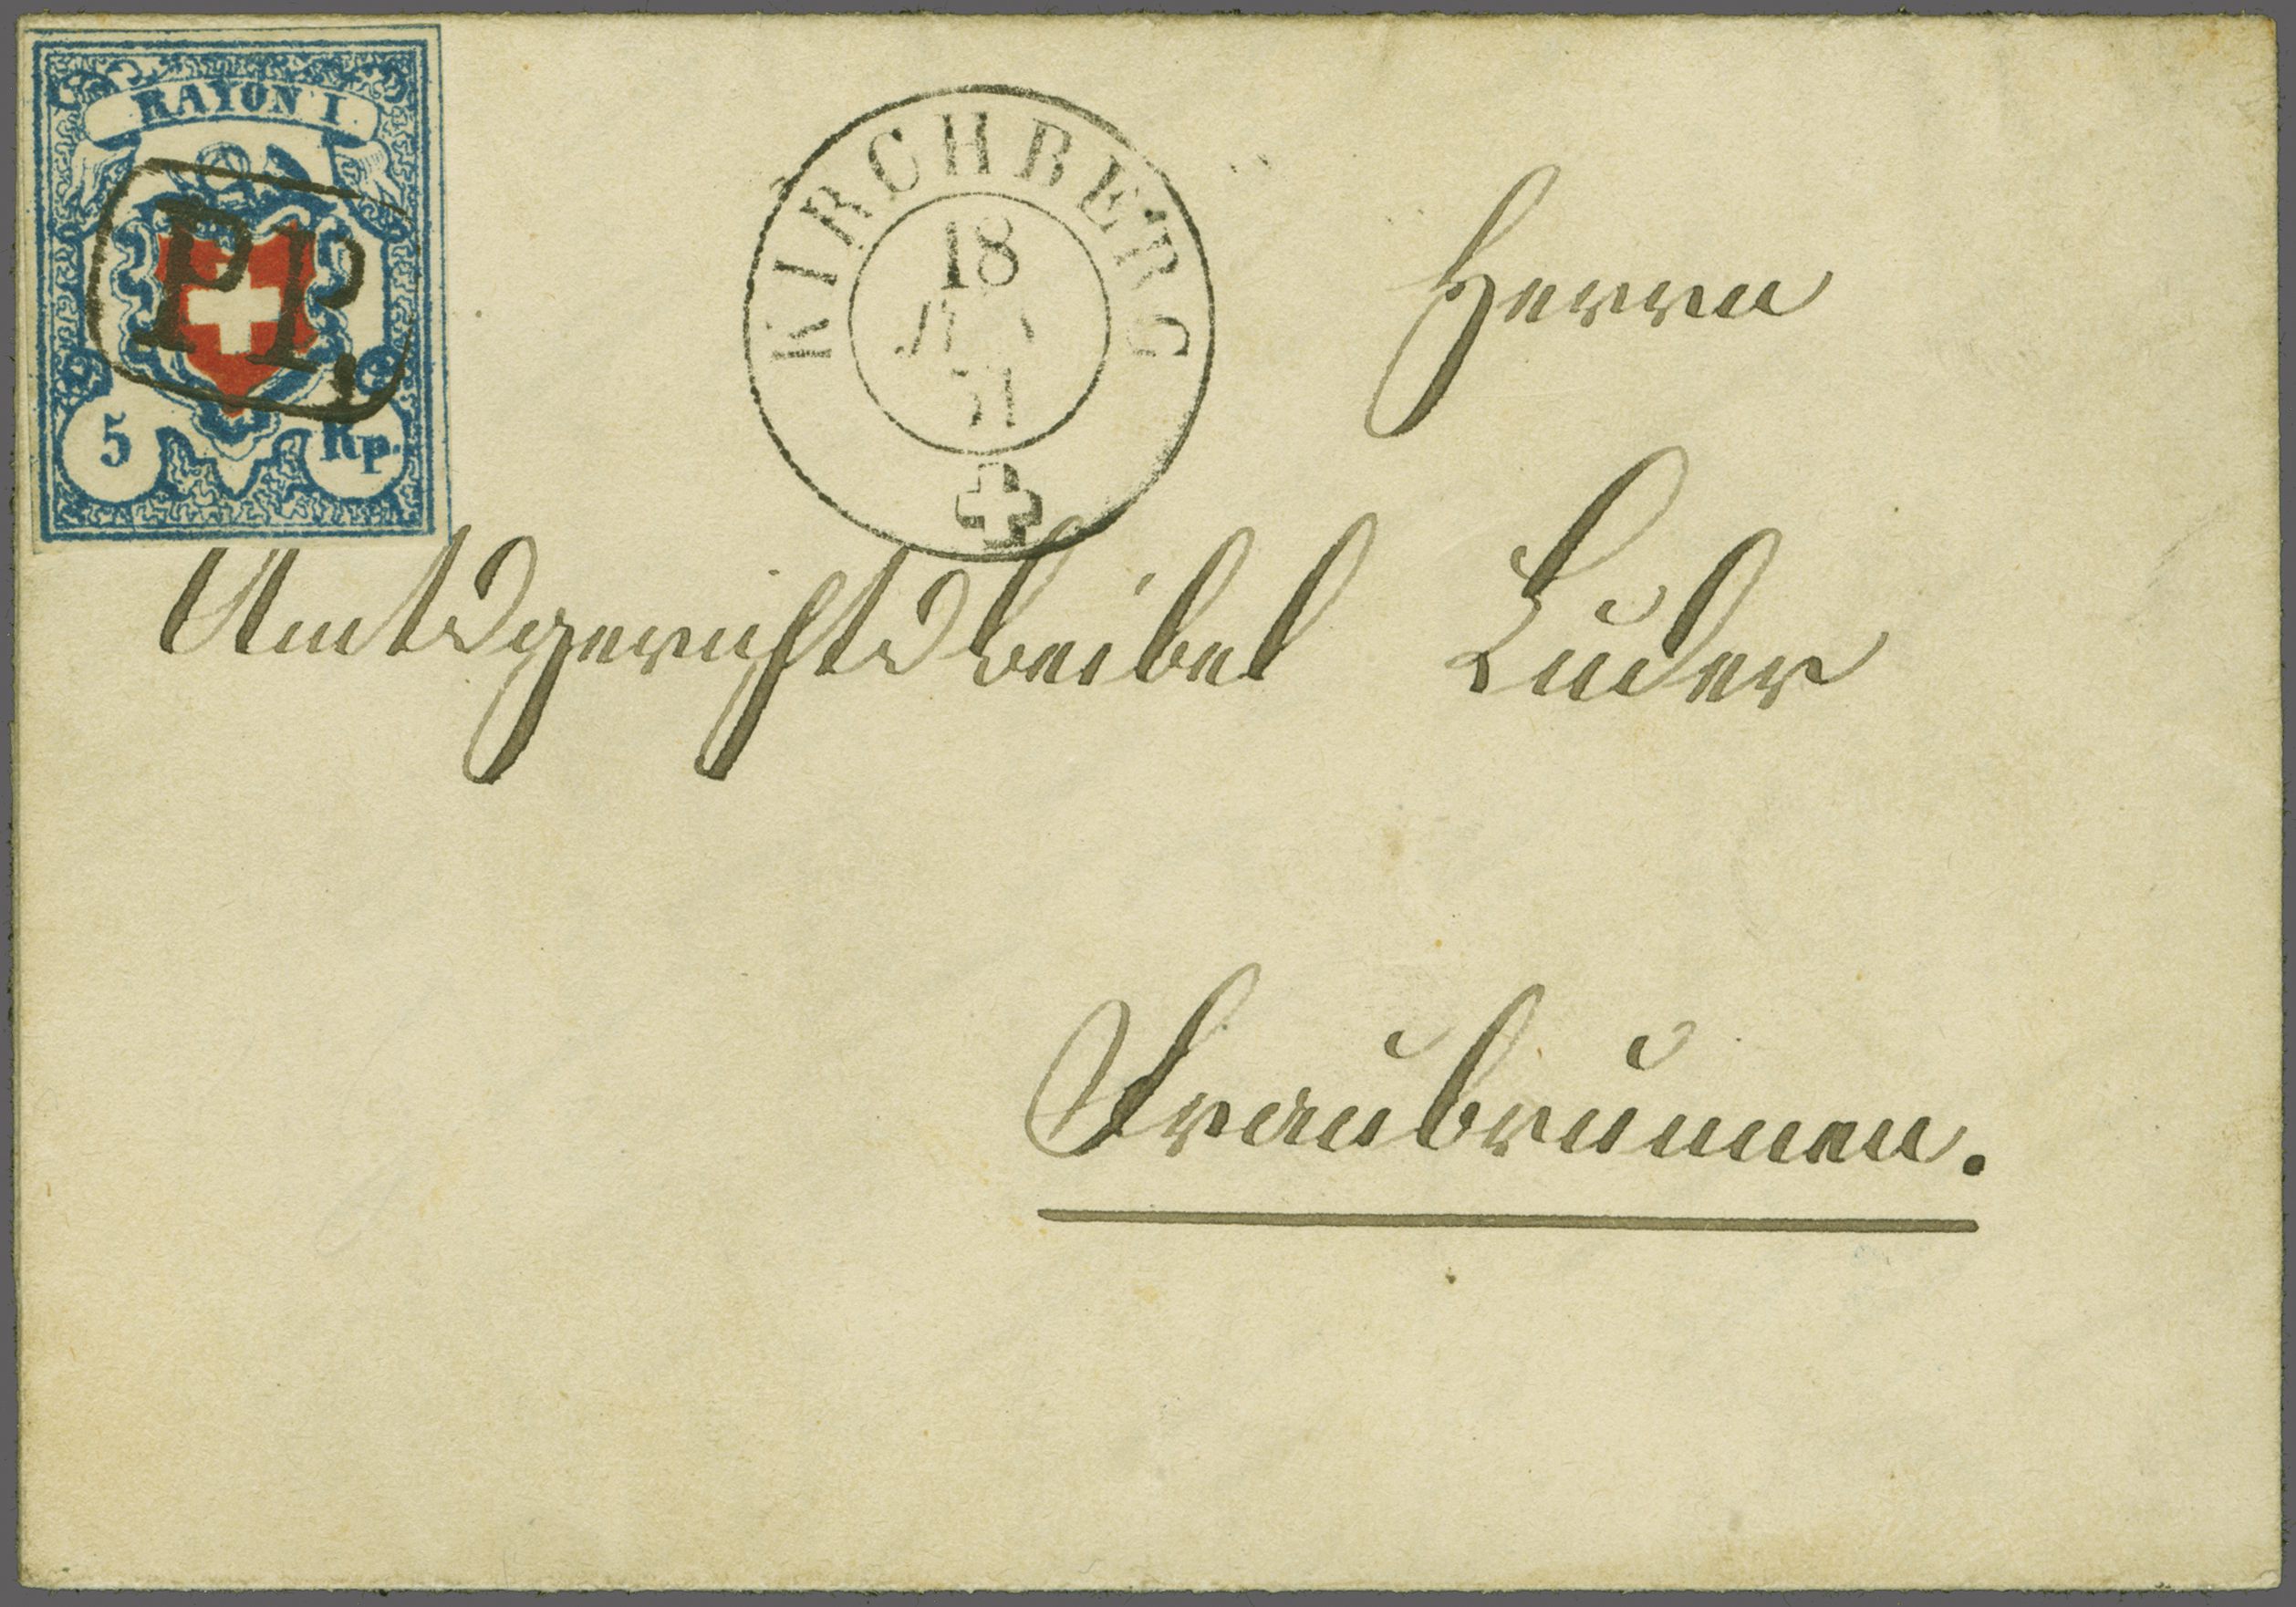 RAYON I
PP.
5 Rp.
KIRCHBERG
18
51
Herrn
Amtsgerichtsweibel Luder
Fraubrunnen.